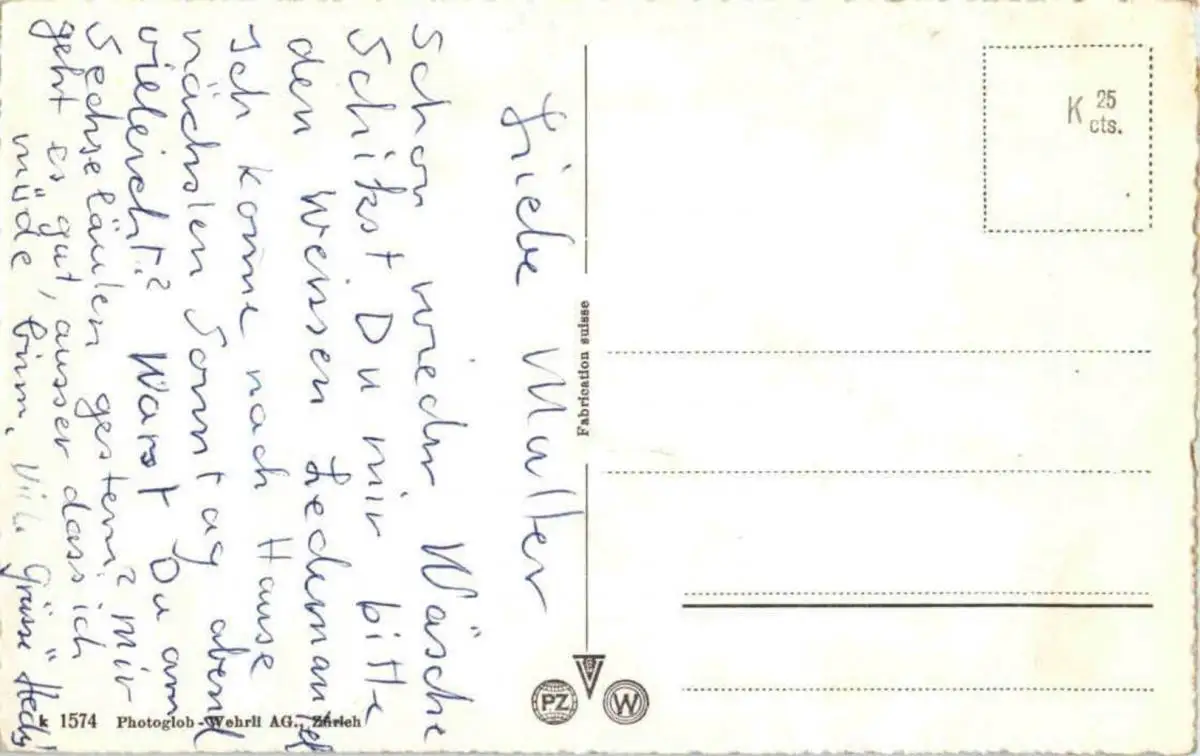 Liebe Mutter
Schon wieder Wäsche
Schikst Du mir bitte
den Weissen Ledermantel
Ich komme nach Hause
nächsten Sonntag abend
vieleicht? Warst Du am
Sechseläuten gestern? Mir
geht es gut, ausser dass ich
müde binn. Viele Grüsse
K 25
cts.
Fabrication suisse
PZ
W
k 1574 Photoglob-Wehrli AG., Zürich